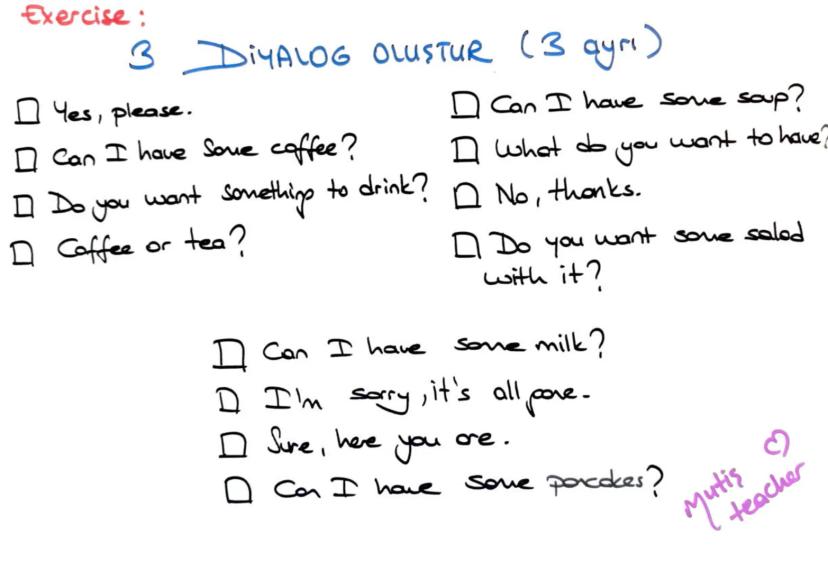 Exercise:
3 DİYALOG OLUSTUR (3 ayrı)
Yes, please.
Can I have some coffee?
Do you want something to drink?
Coffee or tea?
Can I have some soup?
What do you want to have?
No, thanks.
Do you want some salad
with it?
Can I have some milk?
I'm sorry, it's all gone.
Sure, here you are.
Can I have some pancakes?
Mutis
teacher